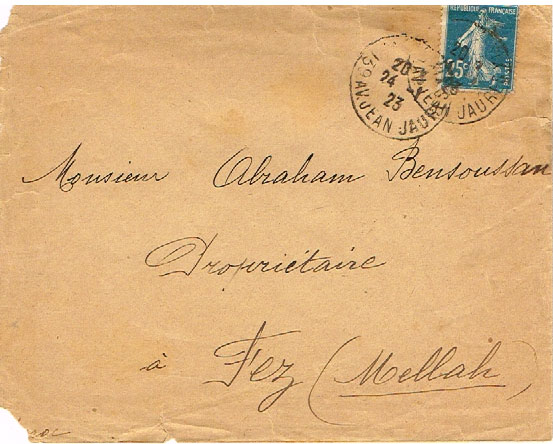 REPUBLIQUE FRANÇAISE
25c
POSTES
20
24
23
139 AV. JEAN JAUR
JEAN JAUR
Monsieur Abraham Bensoussan
Propriétaire
à Fez (Mellah)